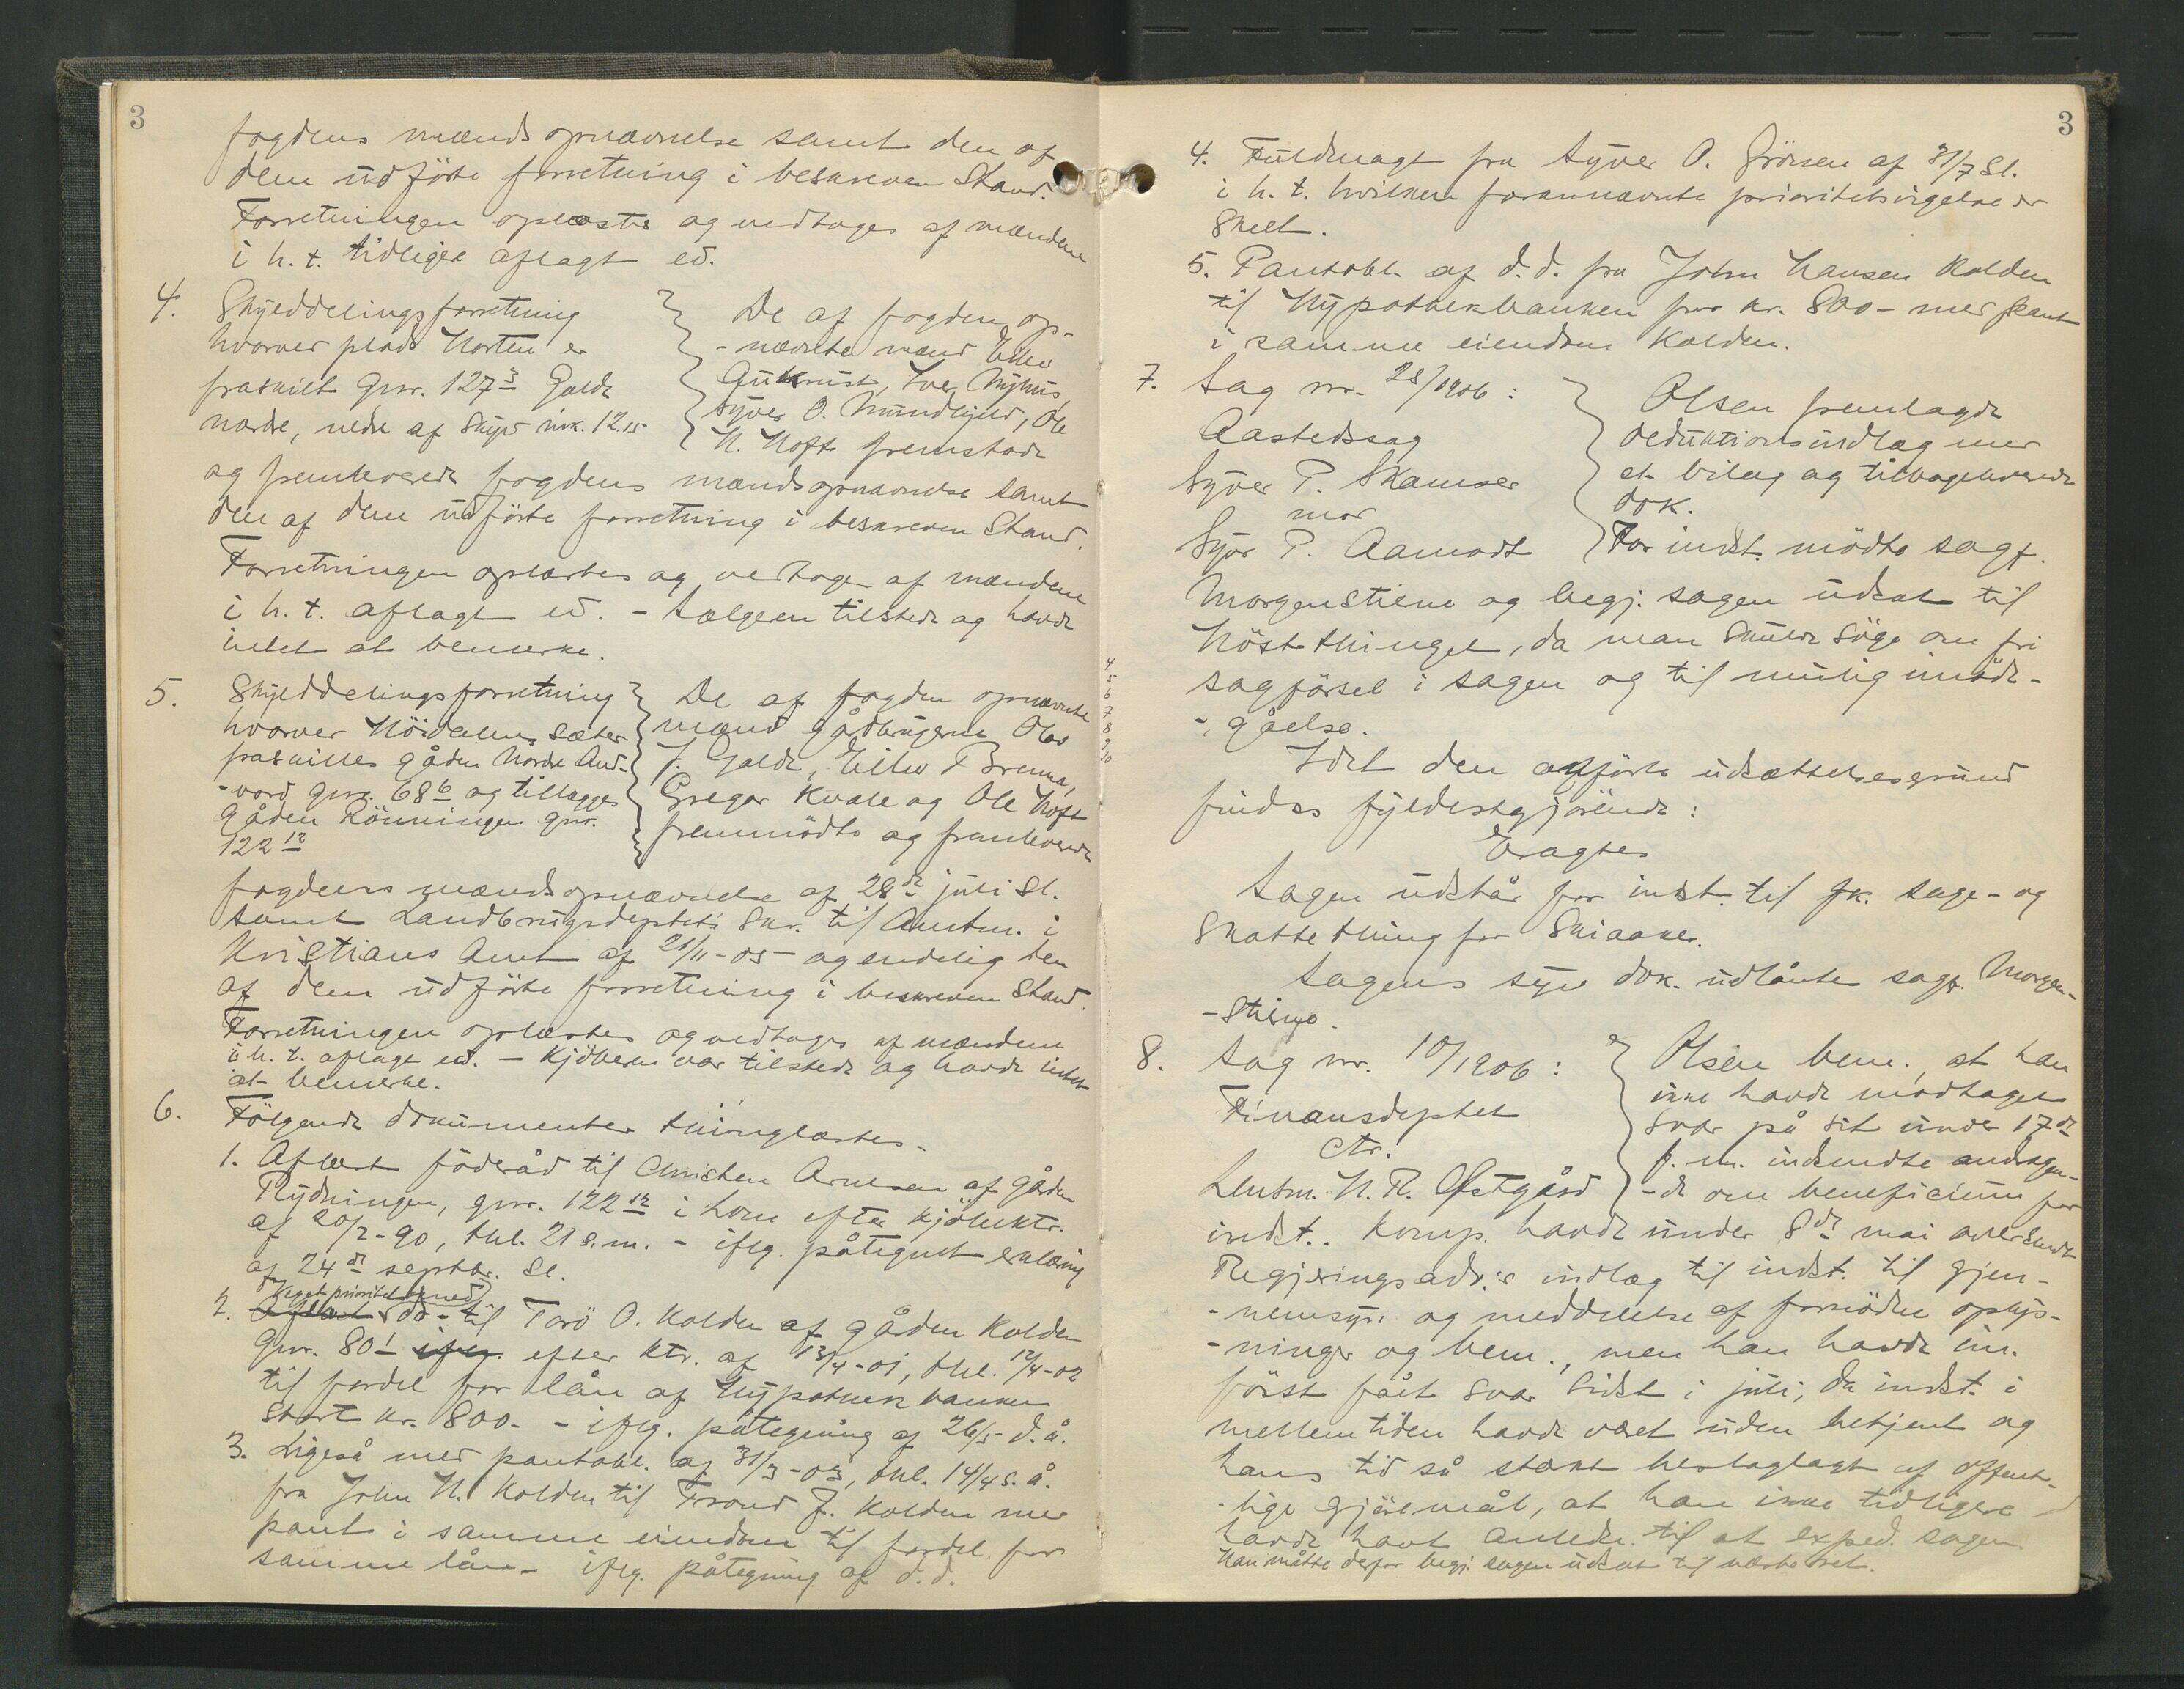 3
fogdens mændsopnævnelse samt den af
dem udførte forretning i beskreven Stand.
Forretningen oplæstes og vedtoges af mændene
i h. t. tidligere aflagt ed.
4. Skylddelingsforretning
hvorved plads Norten er
fraskilt gnr. 127³ Galde
nordre, nedre af Skyld mk. 12.15
De af fogden op-
-nævnte mænd Eilev
Gukrust, Iver Nyhus,
Syver O. Mundhjeld, Ole
N. Hoft fremstod
og fremleverede fogdens mændsopnævnelse samt
den af dem udførte forretning i beskreven Stand.
Forretningen oplæstes og vedtoges af mændene
i h. t. aflagt ed. - Sælgeren tilstede og havde
intet at bemerke.
5. Skylddelingsforretning
hvorver Höidalen sæter
fraskilles gården Nordre And-
-vord gnr. 68⁶ og tillægges
gården Rönningen gnr.
122¹²
De af fogden opnævnte
mænd gårdbrugerne Olav
J. Galde, Eilev P. Brenna,
Gregar Kvale og Ole Hoft
fremmödte og fremleverede
fogdens mændsopnævnelse af 28de juli Sl.
samt Landbrugsdeptets Skr. til Amtm. i
Kristians Amt af 21/11-05 og endelig den
af dem udførte forretning i beskreven Stand.
Forretningen oplæstes og vedtoges af mændene
i h. t. aflagt ed. - Kjöberen var tilstede og havde intet
at bemerke.
6. Fölgende dokumenter thinglæstes:
1. Aflæst föderåd til Christen Arnesen af gården
Rydningen, gnr. 122¹² i Lom efter kjöbektr.
af 20/2-90, thl. 21 s.m. - iflg. påtegnet erklæring
af 24de septbr. Sl.
2. Aflæst Veget prioritet med do - til Torö O. Kolden af gården Kolden
gnr. 80¹ iflg. efter ktr. af 13/4-01, thl. 12/4-02
til fordel for lån af Hypothekbanken
Stort kr. 800. - iflg. påtegning af 26/5 d.å.
3. Ligeså med pantobl. af 31/3-03, thl. 14/4 s.å.
fra John H. Kolden til Trond J. Kolden med
pant i samme eiendom til fordel for
samme lån - iflg. påtegning af d.d.
3
4. Fuldmagt fra Syver O. Grösen af 31/7 Sl.
i h. t. hvilken forannævnte prioritetsvigelse er
Skeet.
5. Pantobl. af d.d. fra John Hansen Kolden
til Hypothekbanken for kr. 800- med pant
i samme eiendom Kolden.
7. Sag nr. 28/1906:
Aastedssag
Syver P. Skamsar
mod
Syver P. Aamodt
Olsen fremlagde
deduktionsindlæg med
et bilag og tilbageleverede
dok.
For indst. mödte sagf.
Morgenstierne og begj. sagen udsat til
Höstthinget, da man Skulde söge om fri
sagförsel i sagen og til mulig imöde-
-gåelse.
Idet den anførte udsættelsesgrund
findes fyldestgjörende:
Eragtes
Sagen udstår for indst. til fk. sage- og
Skattething for Skiaaker.
Sagens syv dok. udlåntes sagf. Morgen-
-stierne.
4
5
6
7
8
9
10
8. Sag nr. 10/1906:
Finansdeptet
ctr.
Lensm. H. R. Østgård
Olsen bem., at han
ikke havde modtaget
svar på sit under 17de
f. m. indsendte andragen-
-de om beneficium for
indst. Komp. havde under 8de mai oversendt
Regjeringsadv.'s indlæg til indst. til gjen-
-nemsyn og meddelelse af fornödne oplys-
-ninger og bem., men han havde im.
först fåt svar sidst i juli, da indst. i
mellemtiden havde været uden betjent og
hans tid så stærkt beslaglagt af offent-
-lige gjöremål, at han ikke tidligere
havde havt anledn. til at exped. sagen.
Han måtte derfor begj. sagen udsat til næste ret.